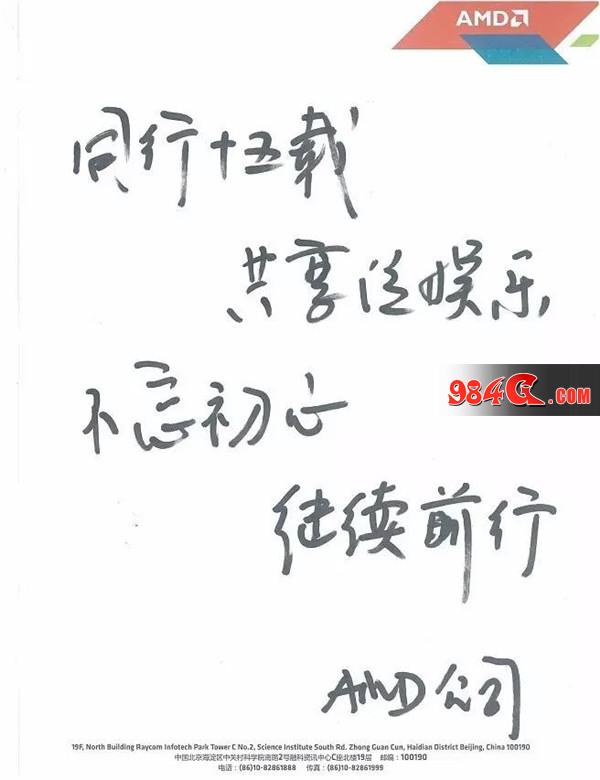 AMD
同行十五载
共享泛娱乐
不忘初心
984G.COM
继续前行
AMD公司
19F, North Building Raycom Infotech Park Tower C No.2, Science Institute South Rd. Zhong Guan Cun, Haidian District Beijing, China 100190
中国北京海淀区中关村科学院南路2号融科资讯中心C座北楼19层 邮编：100190
电话：(86)10-82861888 传真：(86)10-82861999